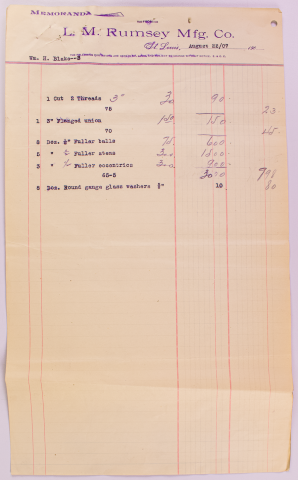 MEMORANDA
L. M. Rumsey Mfg. Co.
St Louis, August 22/07 190
Wm. H. Blake--S
1 Cut 2 Threads 3" 30 90
75 23
1 3" Flanged union 150 150
70 45
8 Doz. ½" Fuller balls 75 600
5 " Fuller stems 300 1500
3 " Fuller eccentrics 300 900
65-5 3000
8 Doz. Round gauge glass washers 10 80